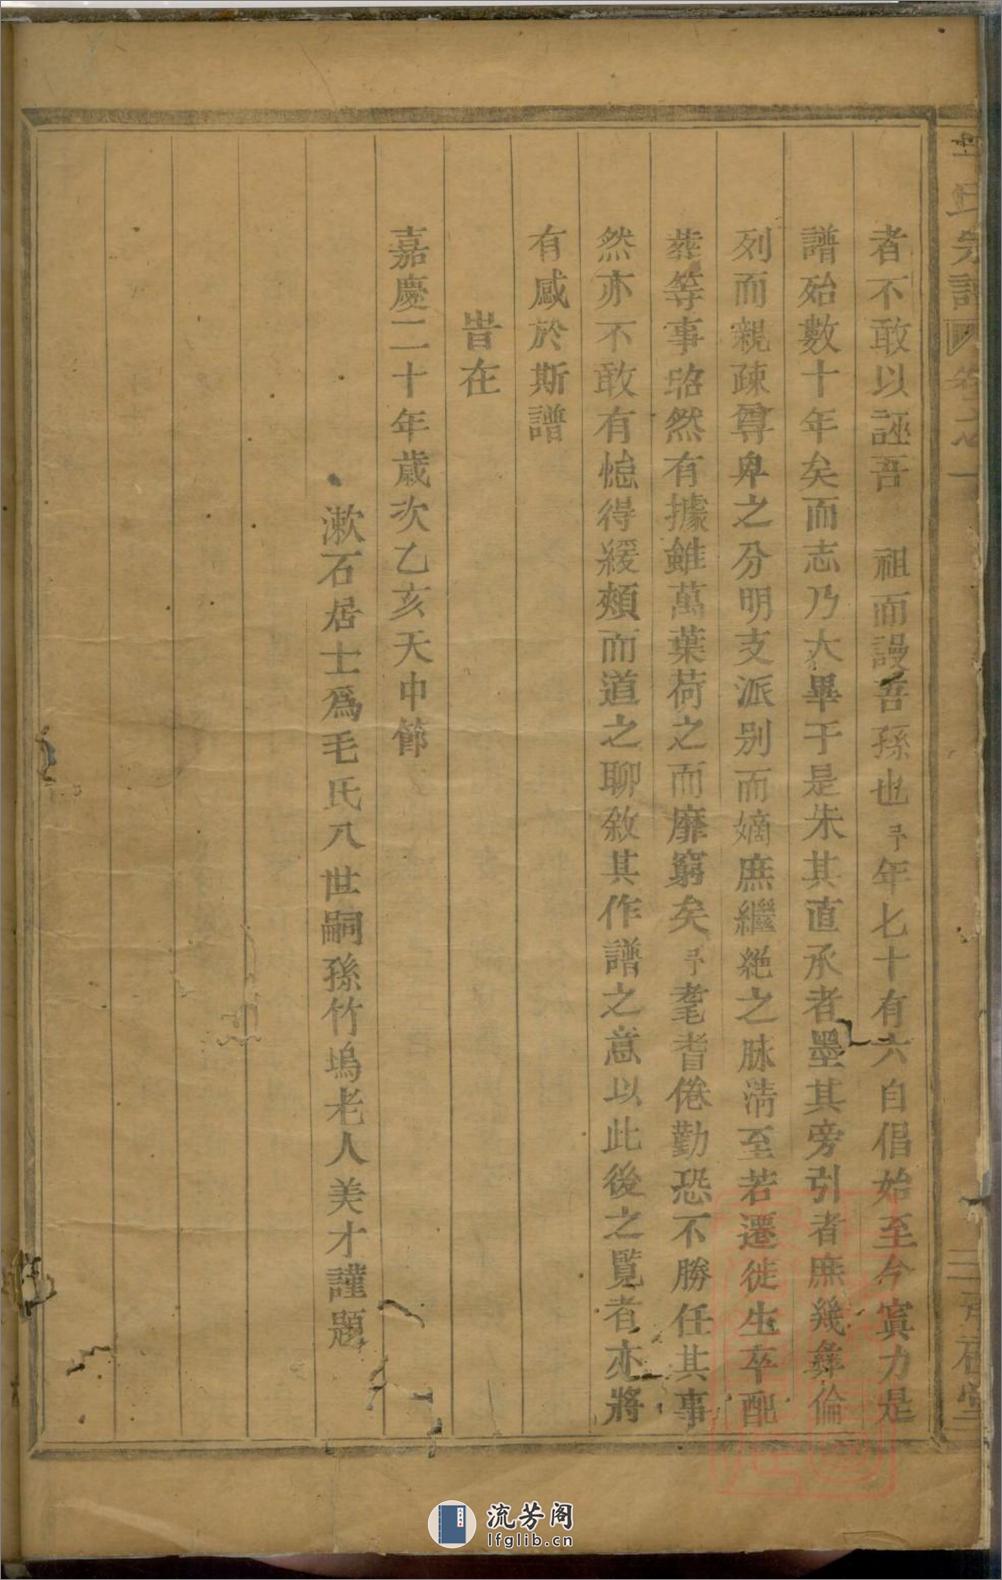 毛氏宗譜 卷之一
者不敢以誣吾 祖而謾吾孫也予年七十有六自倡始至今寘力是
譜殆數十年矣而志乃大畢于是朱其直承者墨其旁引者庶幾彝倫
列而親疎尊卑之分明支派別而嫡庶繼絶之脉淸至若遷徙生卒配
葬等事昭然有據雖萬葉荷之而靡窮矣予耄耆倦勤恐不勝任其事
然亦不敢有怠得緩頰而道之聊敘其作譜之意以此後之覧者亦將
有感於斯譜
旹在
嘉慶二十年歳次乙亥天中節
漱石居士爲毛氏八世嗣孫竹塢老人美才謹題
流芳阁
lfglib.cn